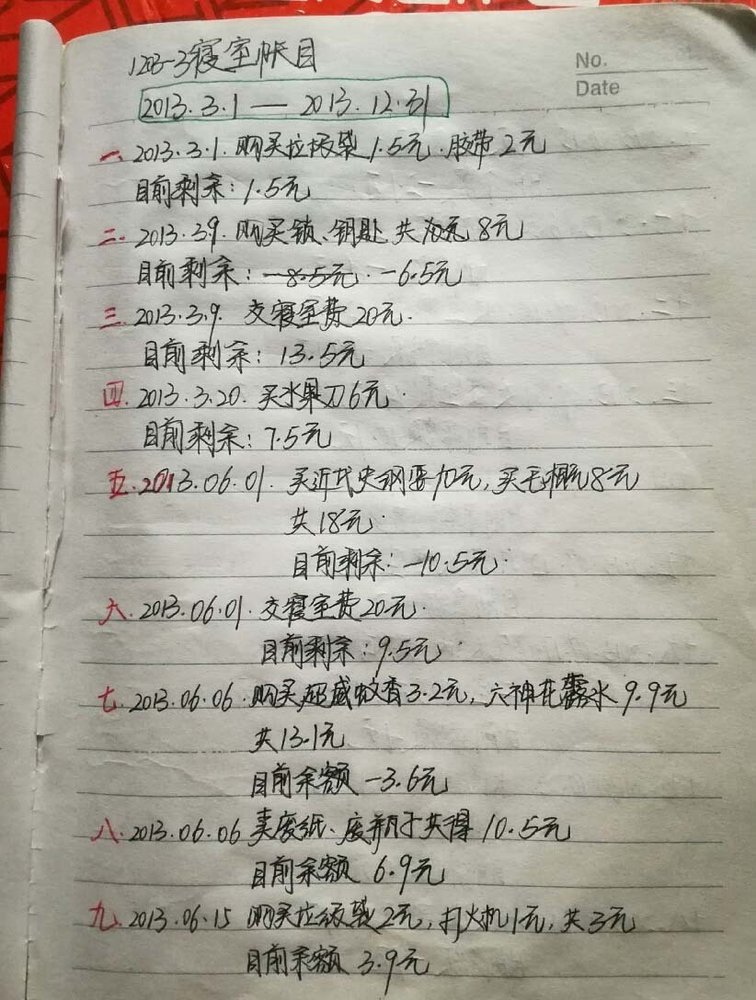 1203-3寝室帐目
No.
Date
2013.3.1 — 2013.12.31
一、2013.3.1. 购买垃圾袋1.5元.胶带2元
目前剩余:1.5元
二. 2013.3.9. 购买锁、钥匙 共 8元
目前剩余:-8.5元. -6.5元.
三. 2013.3.9. 交寝室费20元.
目前剩余:13.5元
四. 2013.3.20. 买水果刀6元.
目前剩余:7.5元
五. 2013.06.01. 买近代史纲要10元,买毛概8元
共18元.
目前剩余:-10.5元.
六. 2013.06.01. 交寝室费20元.
目前剩余:9.5元.
七. 2013.06.06. 购买超威蚊香3.2元,六神花露水9.9元
共13.1元
目前余额 -3.6元
八. 2013.06.06 卖废纸、废瓶子共得10.5元
目前余额 6.9元
九. 2013.06.15 购买垃圾袋2元,打火机1元,共3元
目前余额 3.9元